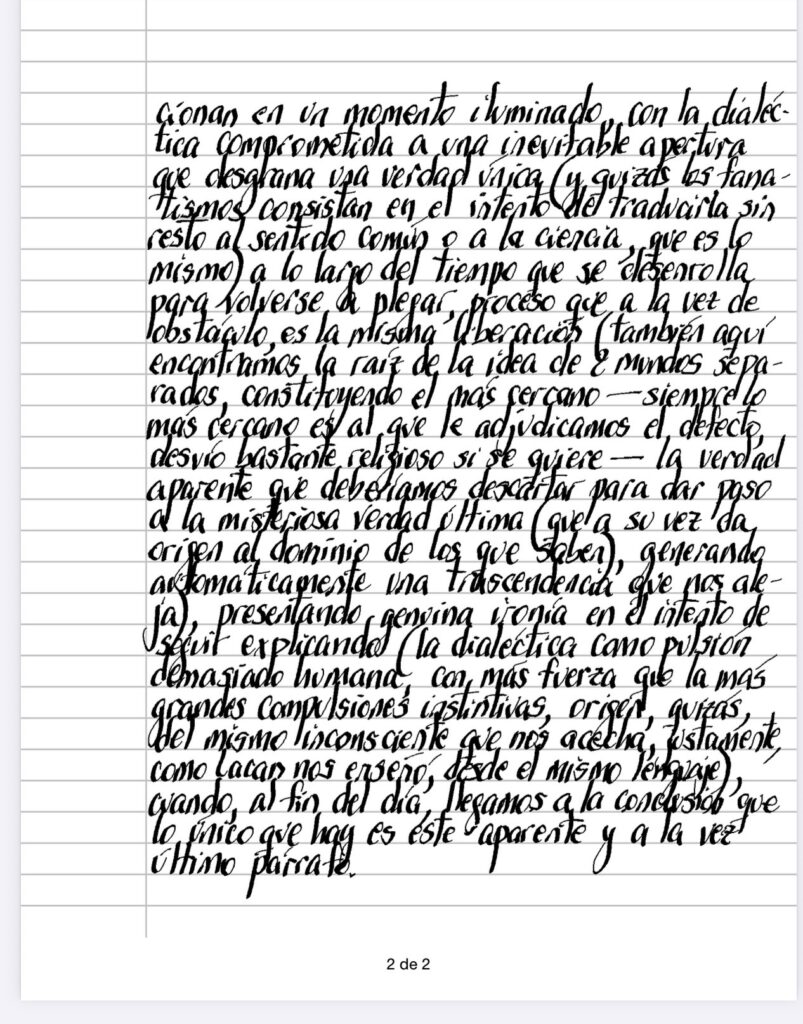 cionan en un momento iluminado, con la dialéc-
tica comprometida a una inevitable apertura
que desgrana una verdad única (y quizás los fana-
tismos consistan en el intento de traducirla sin
resto al sentido común o a la ciencia, que es lo
mismo) a lo largo del tiempo que se desenrolla
para volverse a plegar, proceso que a la vez de
obstáculo, es la misma liberación (también aquí
encontramos la raíz de la idea de 2 mundos sepa-
rados, constituyendo el más cercano — siempre lo
más cercano es al que le adjudicamos el defecto,
desvío bastante religioso si se quiere — la verdad
aparente que deberíamos descartar para dar paso
a la misteriosa verdad última (que a su vez da
origen al dominio de los que saben), generando
automáticamente una trascendencia que nos ale-
ja), presentando genuina ironía en el intento de
seguir explicando (la dialéctica como pulsión
demasiado humana, con más fuerza que la más
grandes compulsiones instintivas, origen, quizás,
del mismo inconsciente que nos acecha, justamente,
como Lacan nos enseñó, desde el mismo lenguaje),
cuando, al fin del día, llegamos a la conclusión que
lo único que hay es este aparente y a la vez
último párrafo.
2 de 2